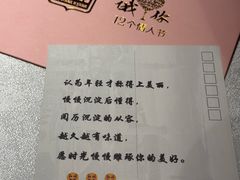 12个情人节
认为年轻才称得上美丽，
慢慢沉淀后懂得，
阅历沉淀的从容，
越久越有味道，
愿时光慢慢雕琢你的美好。